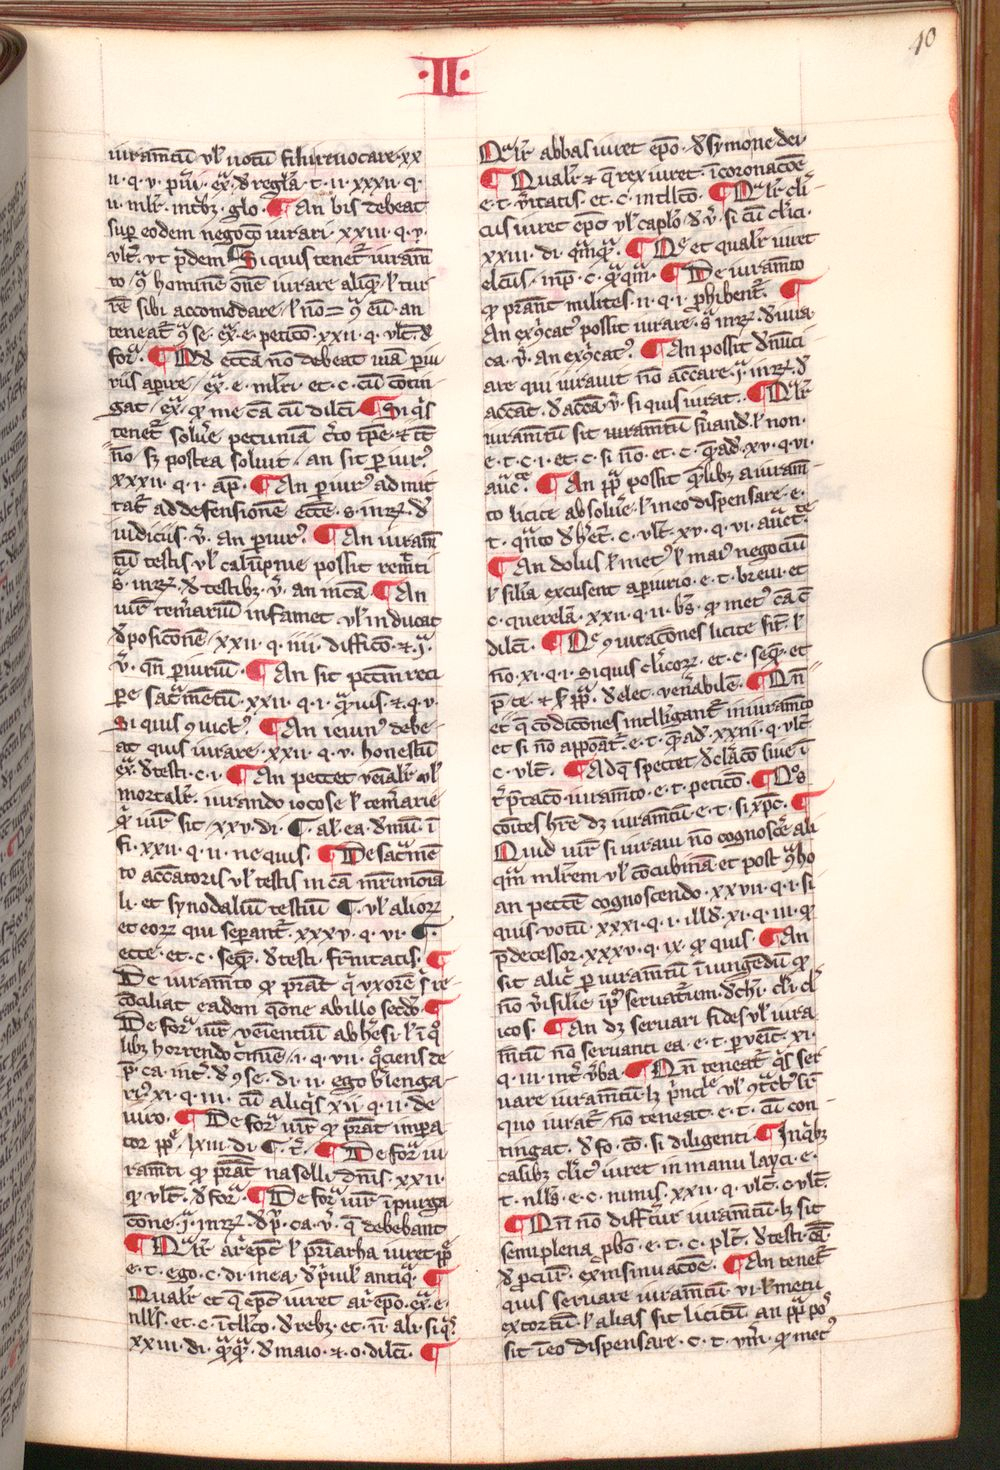 40
·II·
iuramētū ul' uotū filii reuocare xx
ii · q · v · pūi · ex̄ · d' regl'a · t · ii · xxxii · q
ii · ml'r · intr̄bz · glo · ¶ An bis debeat
sup eodem negoco iurari · xxiii · q · v ·
ult̄ · ut p̄dem ¶ Si quis tenet' iuram
to / ꝙ hominē om̄ē iurare aliq̄ l' tur
rē sibi accomodare / l' nō = ꝯ cū · an
teneat' ꝯ se · ex̄ · e · petico · xxii · q · ult̄ · d'
for̄ · ¶ Qd' ecc̄a nō debeat uiā piu
riis apire / ex̄ · e · ml'ri · et · c · cū contin
gat / ex̄ · ꝙ me cā cū dilc̄i ¶ Si q's
tenet' solue pecuniā c̄to tp̄e · ⁊ tc̄
nō · sz postea soluit · an sit piur'
xxxii · q · i · ap̄ · ¶ An piur' admit
tat' ad defensionē ecc̄e · s · in rz̄ · d'
iudiciis · v̄ · an piur' ¶ An iuram̄
tū testis ul' calūpnie possit remīti
s̄ · in rz̄ · d' testibz · v̄ · an in cā ¶ An
iur̄ temerariū infamet ul' inducat
d'posiconē / xxii · q · iiii · diffico · ⁊ · j̄ ·
v̄ · qn̄ piuriū · ¶ An sit pctm̄ reci
pe sac̄mētū · xxii · q · i · q̄uis · ⁊ · q · v ·
si quis ꝯuict' ¶ An ieiun' debe
at quis iurare · xxii · q · v · honestū
ex̄ · d' testi · c · i · ¶ An peccet uēial'r ul'
mortal'r · iurando iocose l' temerarie
q̄ iur̄ sit / xxv · di · ¶ · al · ea · d' mū · ī
fi · xxii · q · ii · ne quis · ¶ De sac̄mē
to acc̄atoris ul' testis in cā mr̄imoīa
li · et synodaliū testiū ¶ · ul' alioꝝ
et eoꝝ qui sepant' · xxxv · q · vi · ¶ ·
ecce · et · c · seq̄ · d' testi · fr̄nitatis · ¶
De iuramto ꝙ pr̄at' q uxorē s' re
cōciliat eadem q̄one ab illo secd'o · ¶
De for̄ iur̄ uenientiū ab h'esi · l' ī q'
libz horrendo c̄mīne · i · q · vii · q̄ciens de
p̄ · ca · int̄ · d' ꝯse · di · ii · ego b'lenga
ri' · xi · q · iii · cū aliq's xii · q · ii · de
uiro · ¶ De for̄ iur̄ ꝙ pr̄at impa
tor pp̄e · lxiii · di · ¶ · t̄ · ¶ De for̄ iu
ramti ꝙ pr̄at' uasalli dn̄is · xxii ·
q · ult̄ · d' for̄ · ¶ De for̄ iur̄ ī purga
cōne · j̄ · in rz̄ · d' p̄ · ca · v̄ · q̄ debebant
¶ Qual'r ar̄epc̄ l' pr̄iarha iuret pp̄
e · t · ego · c · di · mea · d' p̄uil' antiq̄ · ¶
Qual'r et q̄ epc̄ iuret ar̄epo · ex̄ · e ·
nll's · et · c · ītll'co · d' rebz · et · n̄ · al'r · si q's
xxiii · di · q̄q̄ · d' maio · ⁊ · o · dilc̄i · ¶
Qual'r abbas iuret epo · d' symone dei ·
¶ Qual'r ⁊ q̄ rex iuret · ī coronacōe
e · t · v̄itatis · et · c · intllc̄o · ¶ Qual'r cl'i
cus iuret epo ul' caplo · d' v̄ · si cū cl'ici ·
xxiii · di · q̄mq̄ · ¶ Qs et qual'r iuret
elcus · imp̄ · c · q̄q̄m · ¶ De iuramto
ꝙ pr̄ant milites · ii · q · i · p̄hibent' · ¶
An exꝯicat' possit iurare · s̄ · in rz̄ · d' iura
ca · v̄ · an exꝯicat' · ¶ An possit d'nūci
are qui iurauit nō acc̄are · j̄ · in rz̄ · d'
acc̄at · d' acc̄a v̄ · si quis iurat · ¶ Qual'r
iuramtū sit iuramtū s'uand' · l' non ·
e · t · c · i · et · c · si nō · et · c · q̄ad' · xv · q · vi ·
auc̄te · ¶ An pp̄a possit q̄libz a iuram
to licite absolue · l' in eo dispensare · e ·
t · q̄nto d' h'et · c · ult̄ · xv · q · vi · auct̄e
¶ An dolus l' met' l' mai' negociū
l' silia excusent a piurio · e · t · breui · et
c · querela · xxii · q · ii · b's · ꝙ met' cā c̄
dilc̄i · ¶ De ꝯiuracōnes licite sīt · l'
nō · xi · q · i · si quis cl'icoꝝ · et · c · seq̄ · et
p̄ · te · ⁊ s' pp̄ · d' elec · ven'abilē · ¶ Qn̄
et q̄ cōdicōnes intll'igant' in iuramto
et si nō appoāt' · e · t · q̄ad' · xxiii · q · ult̄
c · ult̄ · ¶ Ad q̄ spectet d'claco siue ī
t'p̄taco iuramto · e · t · petico · ¶ Qs
cōites hr̄e dz iuramtū · e · t · si xp̄c · ¶
Quid iur̄ si iuraui nō cognosc'e ali
q̄m ml'rem ul' cōcubinā et post ꝯho
an peccē cognoscendo · xxvii · q · i · si
quis · uotū · xxxi · q · i · ill'd · xi · q · iii · ꝙ
p̄decessor · xxxv · q · ix · ꝙ quis · ¶ An
sit alic̄ p iuramtū īiungendū ꝙ
nō v̄isilie ip̄o seruat'um · d' chi · cl'i cl'
icos · ¶ An dz seruari fides ul' iura
mtū nō seruanti ea · e · t · puēit · xi ·
q · iii · int̄ v̄ba · ¶ Qn̄ teneat' q's ser
uare iuramtū · lz p̄ncīle ul' ꝯt'ct' s'r
quo iurat' nō teneat · e · t · cū con
tingat · d' fo · co · si diligenti · ¶ In q'bz
casibz cl'ic' iuret in manu layci · e ·
t · nll's · e · c · nimis · xxii · q · ult̄ · c · ult̄
¶ Qn̄ nō differ̄ur iuramtū · lz sit
semiplena pb̄o · e · t · c · plr̄ · d' testi · cā
d' pcur̄ · ex̄ insinuacoe · ¶ An tenet'
quis seruare iuramtū · ui · l' metu
extortū l' alias sit licitū · an pp̄ pos
sit ī eo dispensare · c · t · uer̄ · ꝙ met'